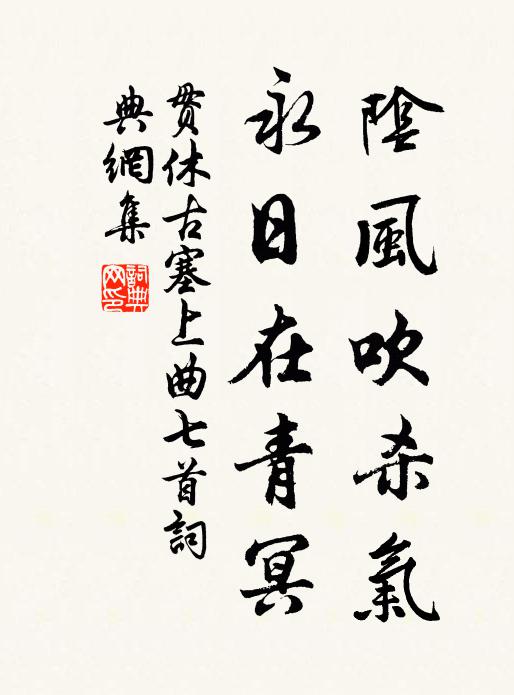 陰風吹杀氣
永日在青冥
貫休古塞上曲七首詞
典網集
詞典网印